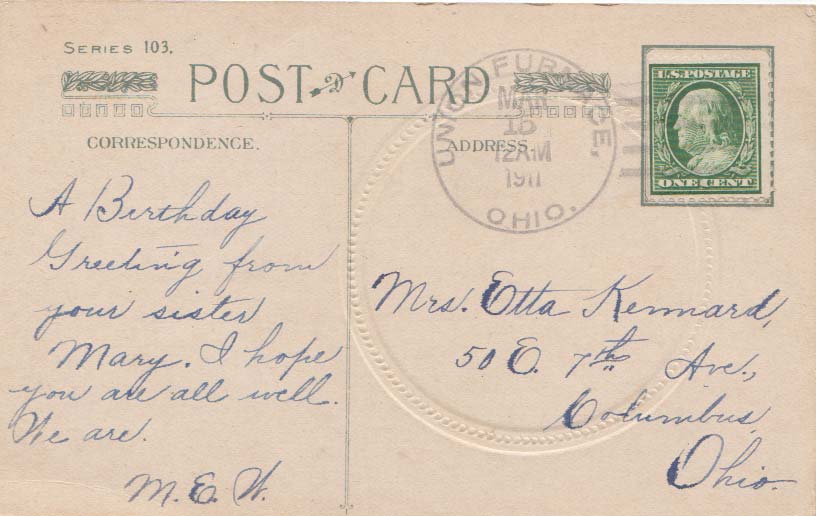 SERIES 103.
POST CARD
CORRESPONDENCE.
ADDRESS
UNION FURNACE,
MAR
15
12AM
1911
OHIO.
U.S. POSTAGE
ONE CENT
A Birthday
Greeting from
your sister
Mary. I hope
you are all well.
We are.
M. E. W.
Mrs. Etta Kennard,
50 E. 7th Ave.,
Columbus,
Ohio.